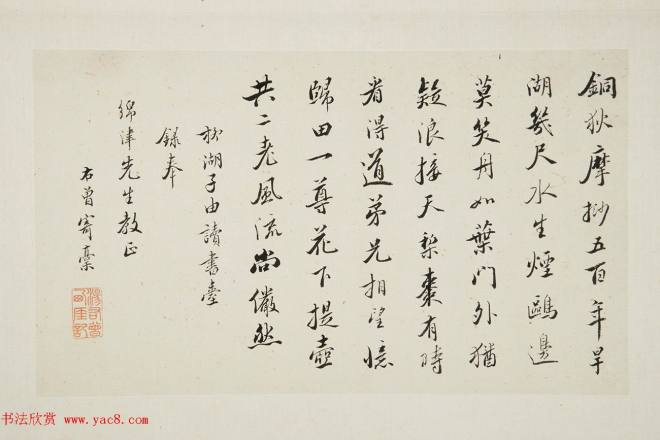 銅狄摩挱五百年旱
湖幾尺水生煙鷗邊
莫笑舟如葉門外猶
疑浪接天梨棗有時
看得道弟兄相望憶
歸田一尊花下提壺
共二老風流尚儼然
松湖子由讀書臺
錄奉
綿津先生教正
右曾寄藁
书法欣赏 www.yac8.com